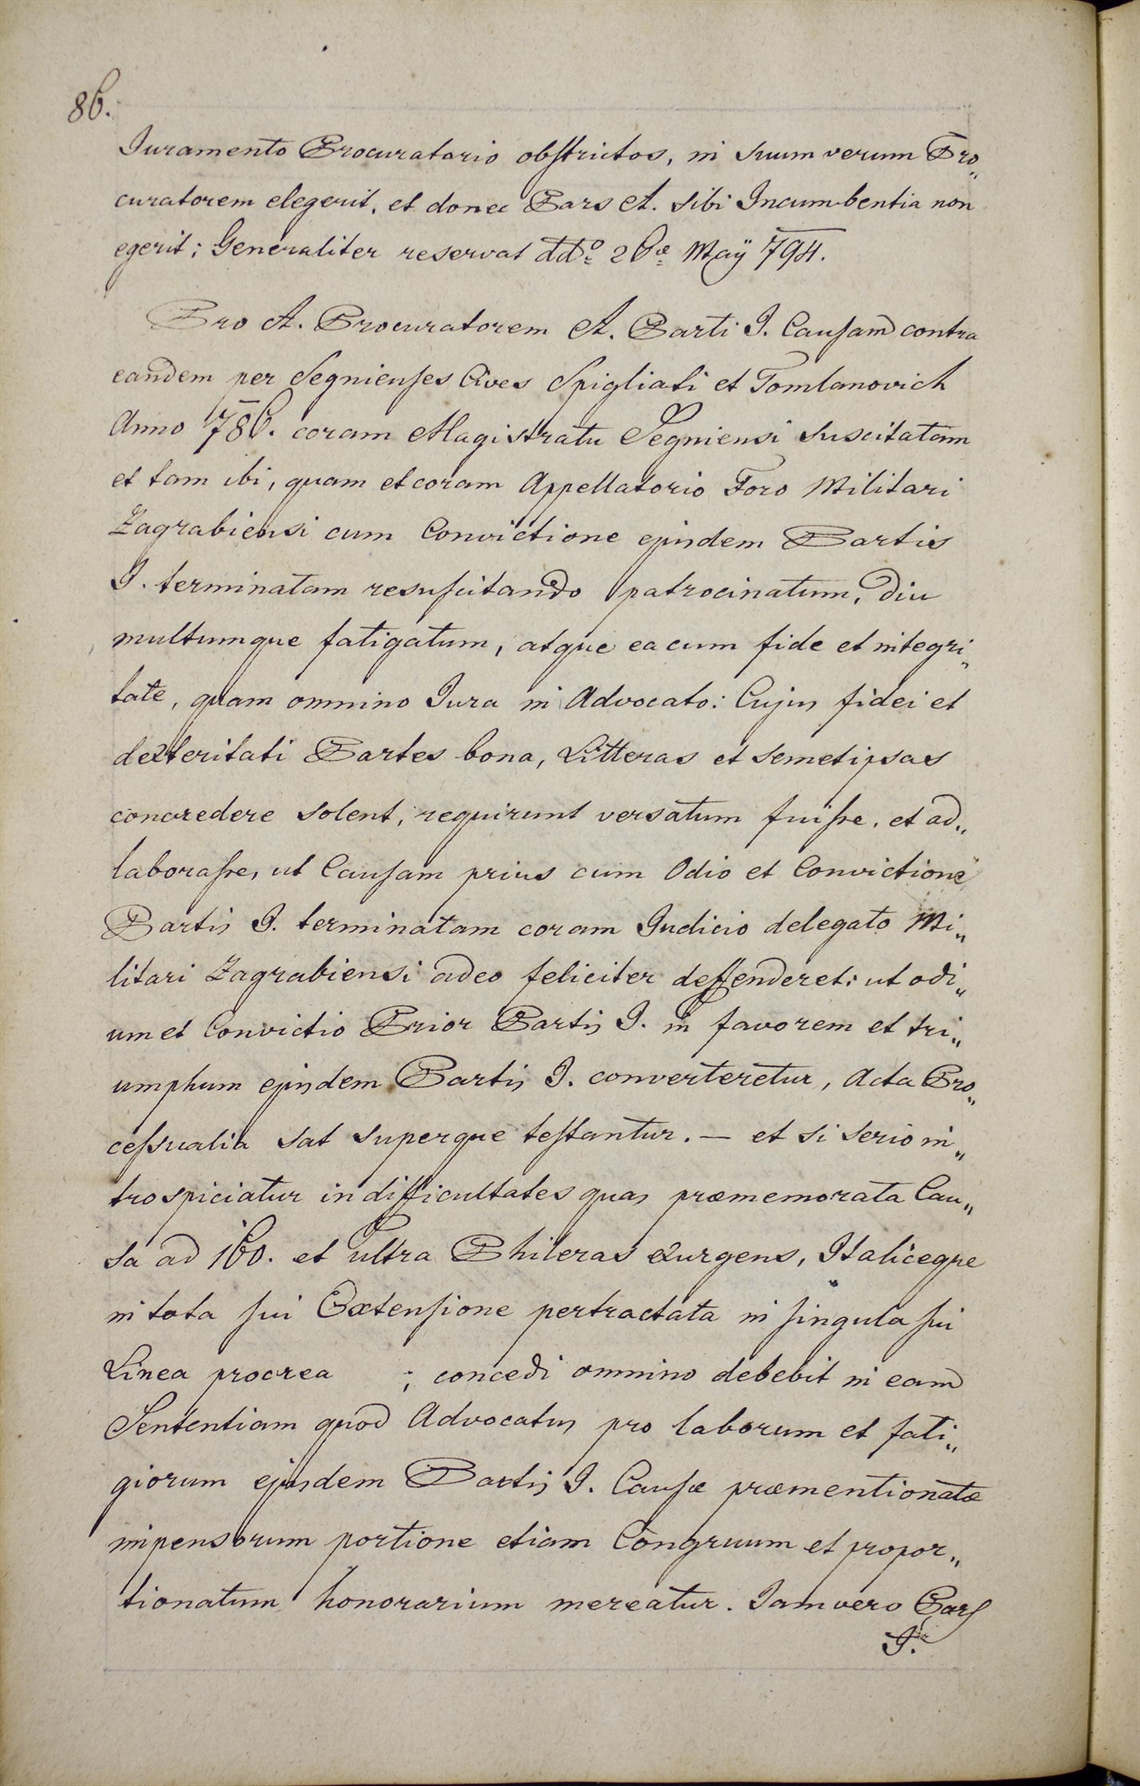 86.
Juramento Procuratorio obstrictos, in suum verum Pro„
curatorem elegerit, et donec Pars A. sibi Incumbentia non
egerit; Generaliter reservat ddo 26æ Maÿ 794.
Pro A. Procuratorem A. Parti I. Causam contra
eandem per Segnienses Cives Spigliati et Tomlanovich
Anno 786. coram Magistratu Segniensi suscitatam
et tam ibi, quam et coram Appellatorio Foro Militari
Zagrabiensi cum Convictione ejusdem Partis
I. terminatam resuscitando patrocinatum, diu
multumque fatigatum, atque ea cum fide et integri„
tate, quam omnino Jura in Advocato: Cujus fidei et
dexteritati Partes bona, Litteras et semetipsas
concredere solent, requirunt versatum fuisse, et ad„
laborasse, ut Causam prius cum Odio et Convictione
Partis I. terminatam coram Judicio delegato Mi„
litari Zagrabiensi adeo feliciter deffenderet: ut odi„
um et Convictio Prior Partis I. in favorem et tri„
umphum ejusdem Partis I. converteretur, Acta Pro„
cessualia sat superque testantur. — et si serio in„
trospiciatur in difficultates quas præmemorata Cau„
sa ad 160. et ultra Phileras exurgens, Italiceque
in tota sui Extensione pertractata in singula sui
Linea procrea ; concedi omnino debebit in eam
Sententiam quod Advocatus pro laborum et fati„
giorum ejusdem Partis I. Causæ præmentionatæ
impensorum portione etiam Congruum et propor„
tionatum honorarium mereatur. Jam vero Pars
I.